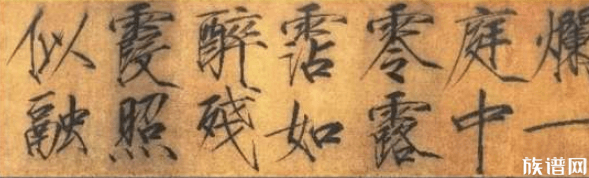 爛一
庭中
零露
霑如
醉殘
霞照
似融
族谱网